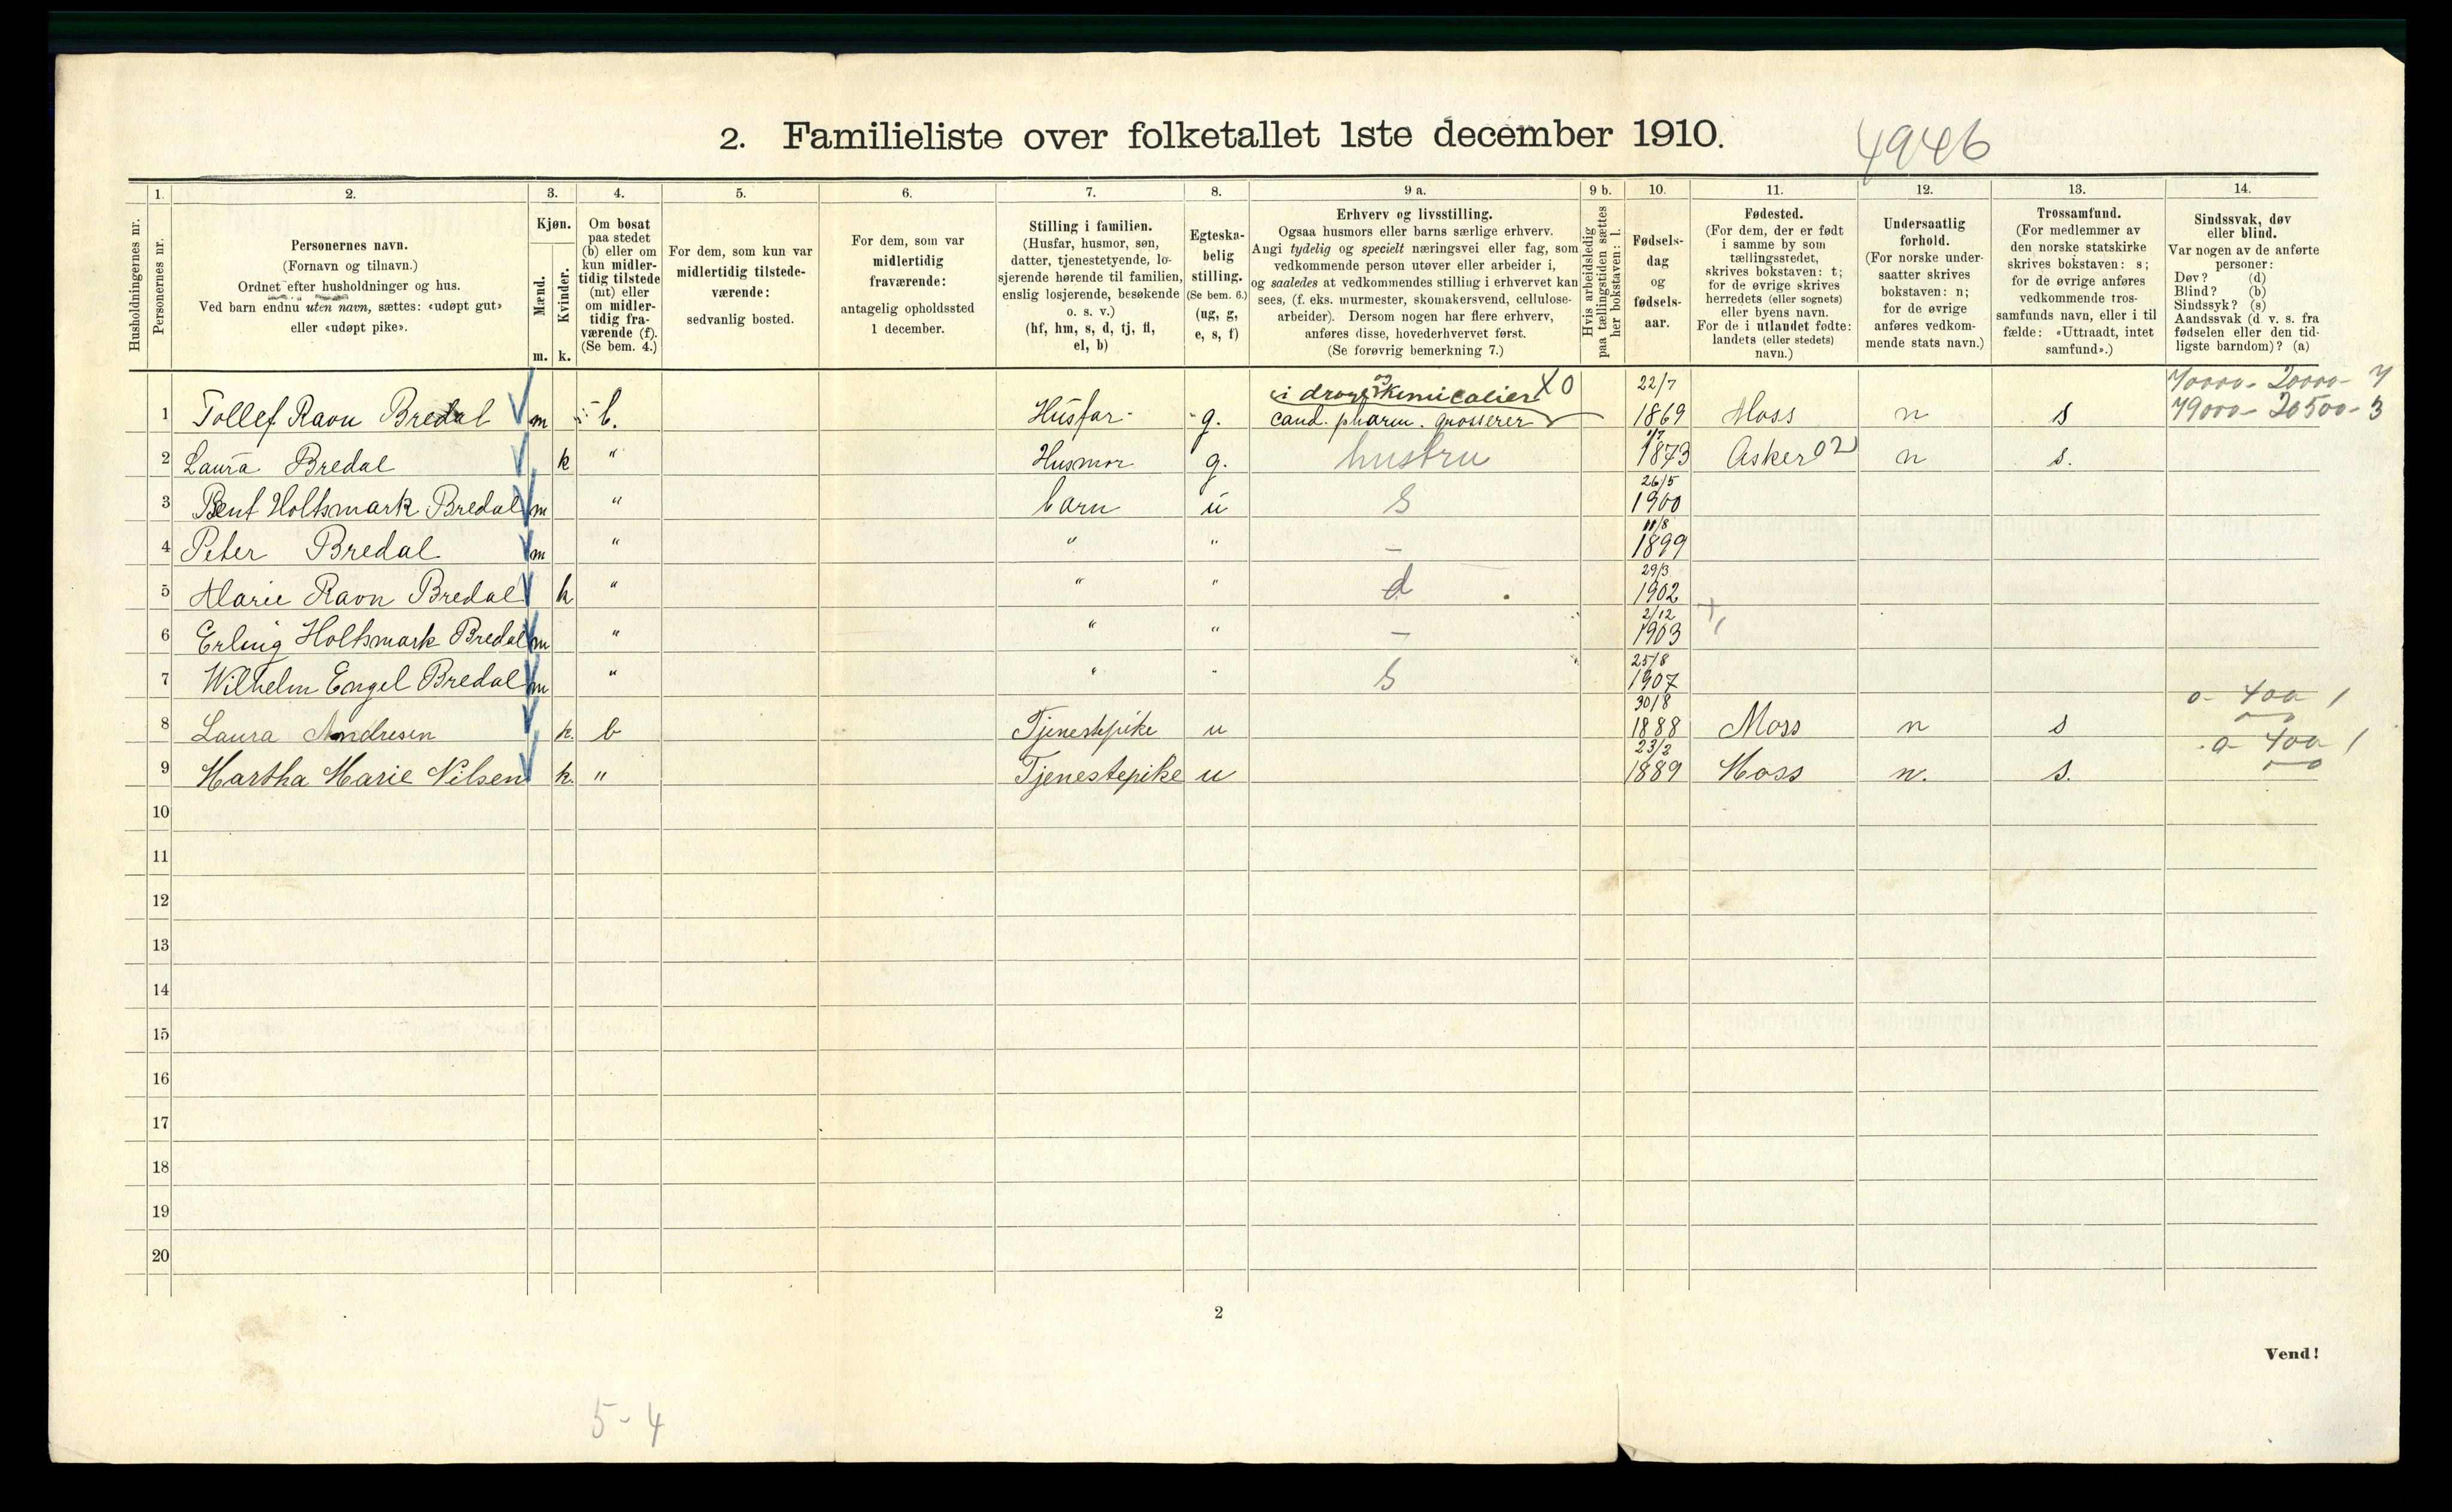 2. Familieliste over folketallet 1ste december 1910.
4946
Husholdningernes nr.
1.
Personernes nr.
2.
Personernes navn.
(Fornavn og tilnavn.)
Ordnet efter husholdninger og hus.
Ved barn endnu uten navn, sættes: «udøpt gut»
eller «udøpt pike».
3.
Kjøn.
Mænd.
Kvinder.
m. k.
4.
Om bosat
paa stedet
(b) eller om
kun midler-
tidig tilstede
(mt) eller
om midler-
tidig fra-
værende (f).
(Se bem. 4.)
5.
For dem, som kun var
midlertidig tilstede-
værende:
sedvanlig bosted.
6.
For dem, som var
midlertidig
fraværende:
antagelig opholdssted
1 december.
7.
Stilling i familien.
(Husfar, husmor, søn,
datter, tjenestetyende, lo-
sjerende hørende til familien,
enslig losjerende, besøkende
o. s. v.)
(hf, hm, s, d, tj, fl,
el, b)
8.
Egteska-
belig
stilling.
(Se bem. 6.)
(ug, g,
e, s, f)
9 a.
Erhverv og livsstilling.
Ogsaa husmors eller barns særlige erhverv.
Angi tydelig og specielt næringsvei eller fag, som
vedkommende person utøver eller arbeider i,
og saaledes at vedkommendes stilling i erhvervet kan
sees, (f. eks. murmester, skomakersvend, cellulose-
arbeider). Dersom nogen har flere erhverv,
anføres disse, hovederhvervet først.
(Se forøvrig bemerkning 7.)
9 b.
Hvis arbeidsledig
paa tællingstiden sættes
her bokstaven: l.
10.
Fødsels-
dag
og
fødsels-
aar.
11.
Fødested.
(For dem, der er født
i samme by som
tællingsstedet,
skrives bokstaven: t;
for de øvrige skrives
herredets (eller sognets)
eller byens navn.
For de i utlandet fødte:
landets (eller stedets)
navn.)
12.
Undersaatlig
forhold.
(For norske under-
saatter skrives
bokstaven: n;
for de øvrige
anføres vedkom-
mende stats navn.)
13.
Trossamfund.
(For medlemmer av
den norske statskirke
skrives bokstaven: s;
for de øvrige anføres
vedkommende tros-
samfunds navn, eller i til
fælde: «Uttraadt, intet
samfund».)
14.
Sindssvak, døv
eller blind.
Var nogen av de anførte
personer:
Døv? (d)
Blind? (b)
Sindssyk? (s)
Aandssvak (d. v. s. fra
fødselen eller den tid-
ligste barndom)? (a)
i drog. og kemicalier X0 22/7 70000- 20000- 4
1 Tollef Ravn Bredal m b. Husfar g. cand. pharm. grosserer 1869 Moss n s 79000- 20500- 3
2 Laura Bredal k " Husmor g. hustru 1/7 1873 Asker 02 n s.
3 Bent Holtsmark Bredal m " barn u s 26/5 1900
4 Peter Bredal m " " " – 11/8 1899
5 Marie Ravn Bredal k " " " d 29/3 1902
6 Erling Holtsmark Bredal m " " " – 2/12 1903
7 Wilhelm Engel Bredal m " " " s 25/8 1907
8 Laura Andresen k. b Tjenestepike u 30/8 1888 Moss n s 0- 400 1
9 Martha Marie Nilsen k. " Tjenestepike u 23/2 1889 Moss n. s. 0- 400 1
10
11
12
13
14
15
16
17
18
19
20
2
Vend!
5-4